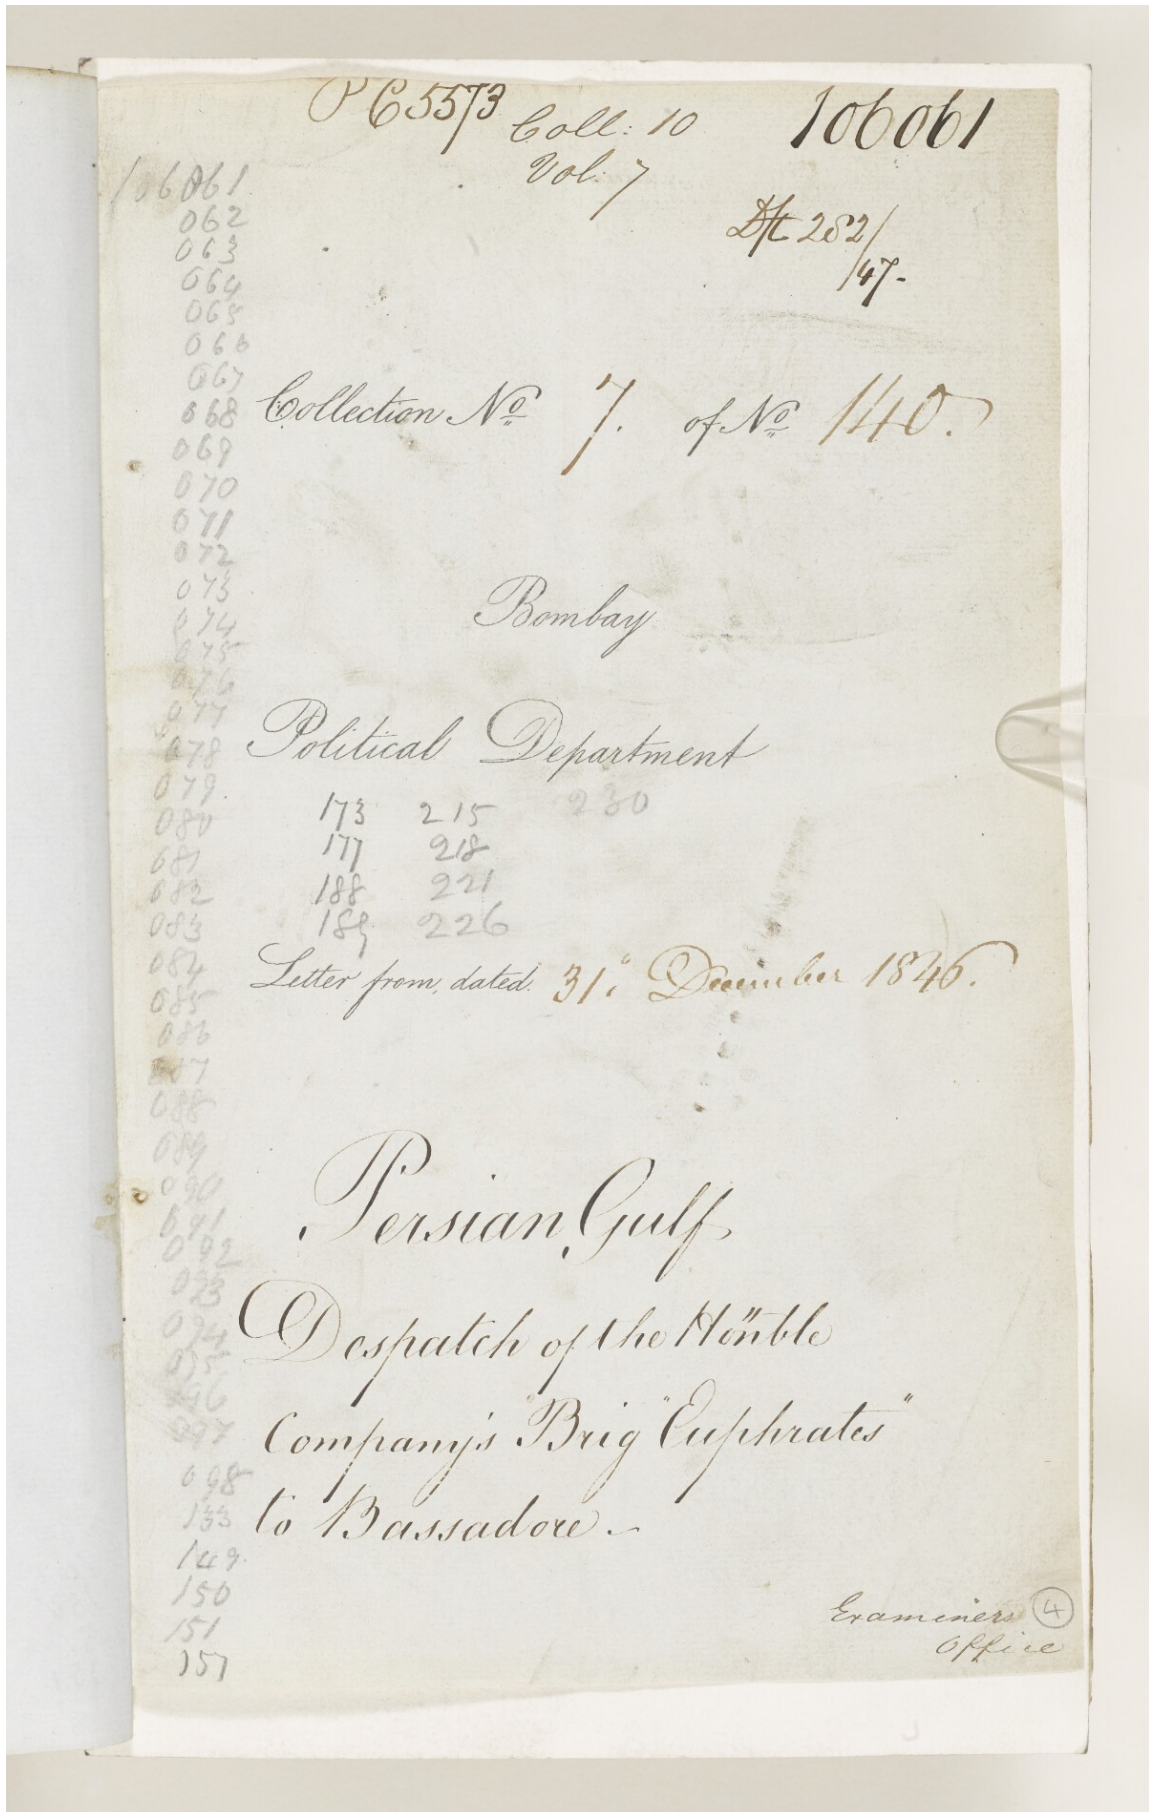 P C 5573
Coll: 10
Vol: 7
106061
Dft 282/
/47-
106061
062
063
064
065
066
067
068
069
070
071
072
073
074
075
076
077
078
079
080
081
082
083
084
085
086
087
088
089
090
091
092
093
094
095
096
097
098
133
149
150
151
157
Collection No 7. of No 140.
Bombay
Political Department
173 215 230
177 218
188 221
189 226
Letter from, dated. 31st December 1846.
Persian Gulf
Despatch of the Hon'ble
Company's Brig "Euphrates"
to Bassadore.-
Examiners
Office
4